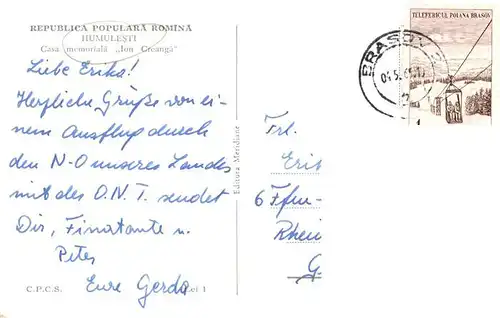 REPUBLICA POPULARĂ ROMÎNĂ
HUMULEȘTI
Casa memorială „Ion Creangă"
Liebe Erika!
Herzliche Grüße von ei-
nem Ausflug durch
den N-O unseres Landes
mit des O.N.T. sendet
Dir, Finatante u.
Peter
Eure Gerda
C.P.C.S.
Lei 1
Editura Meridiane
TELEFERICUL POIANA BRAȘOV
BRAȘOV
Frl.
Erik
6 Ffm-
Rhein
G